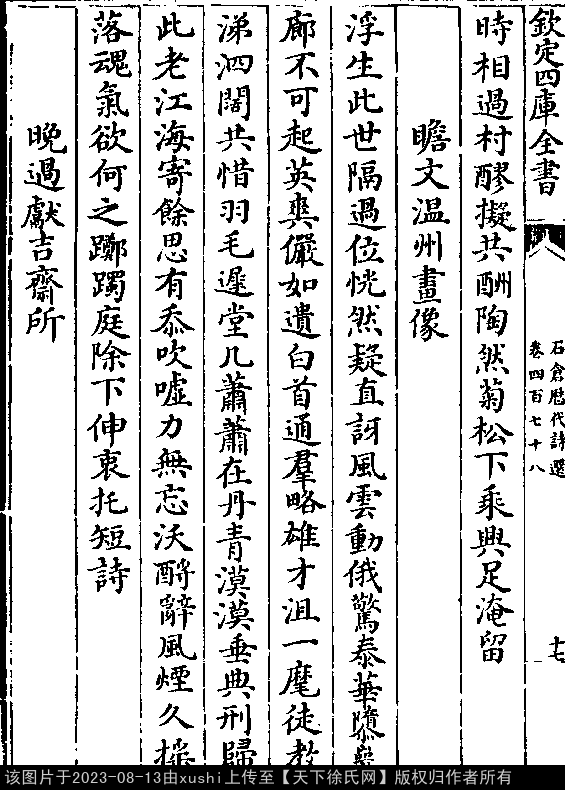 欽定四庫全書
石倉歷代詩選
卷四百七十八
十七
時相過村醪擬共酬陶然菊松下乘興足淹留
瞻文温州畫像
浮生此世隔過位恍然疑直訝風雲動俄驚泰華隳
廊不可起英爽儼如遺白首通羣略雄才沮一麾徒教
涕泗闊共惜羽毛遲堂几蕭蕭在丹青漠漠垂典刑歸
此老江海寄餘思有忝吹嘘力無忘沃酹辭風煙久摇
落魂氣欲何之躑躅庭除下伸衷托短詩
晚過獻吉齋所
该图片于2023-08-13由xushi上传至【天下徐氏网】版权归作者所有